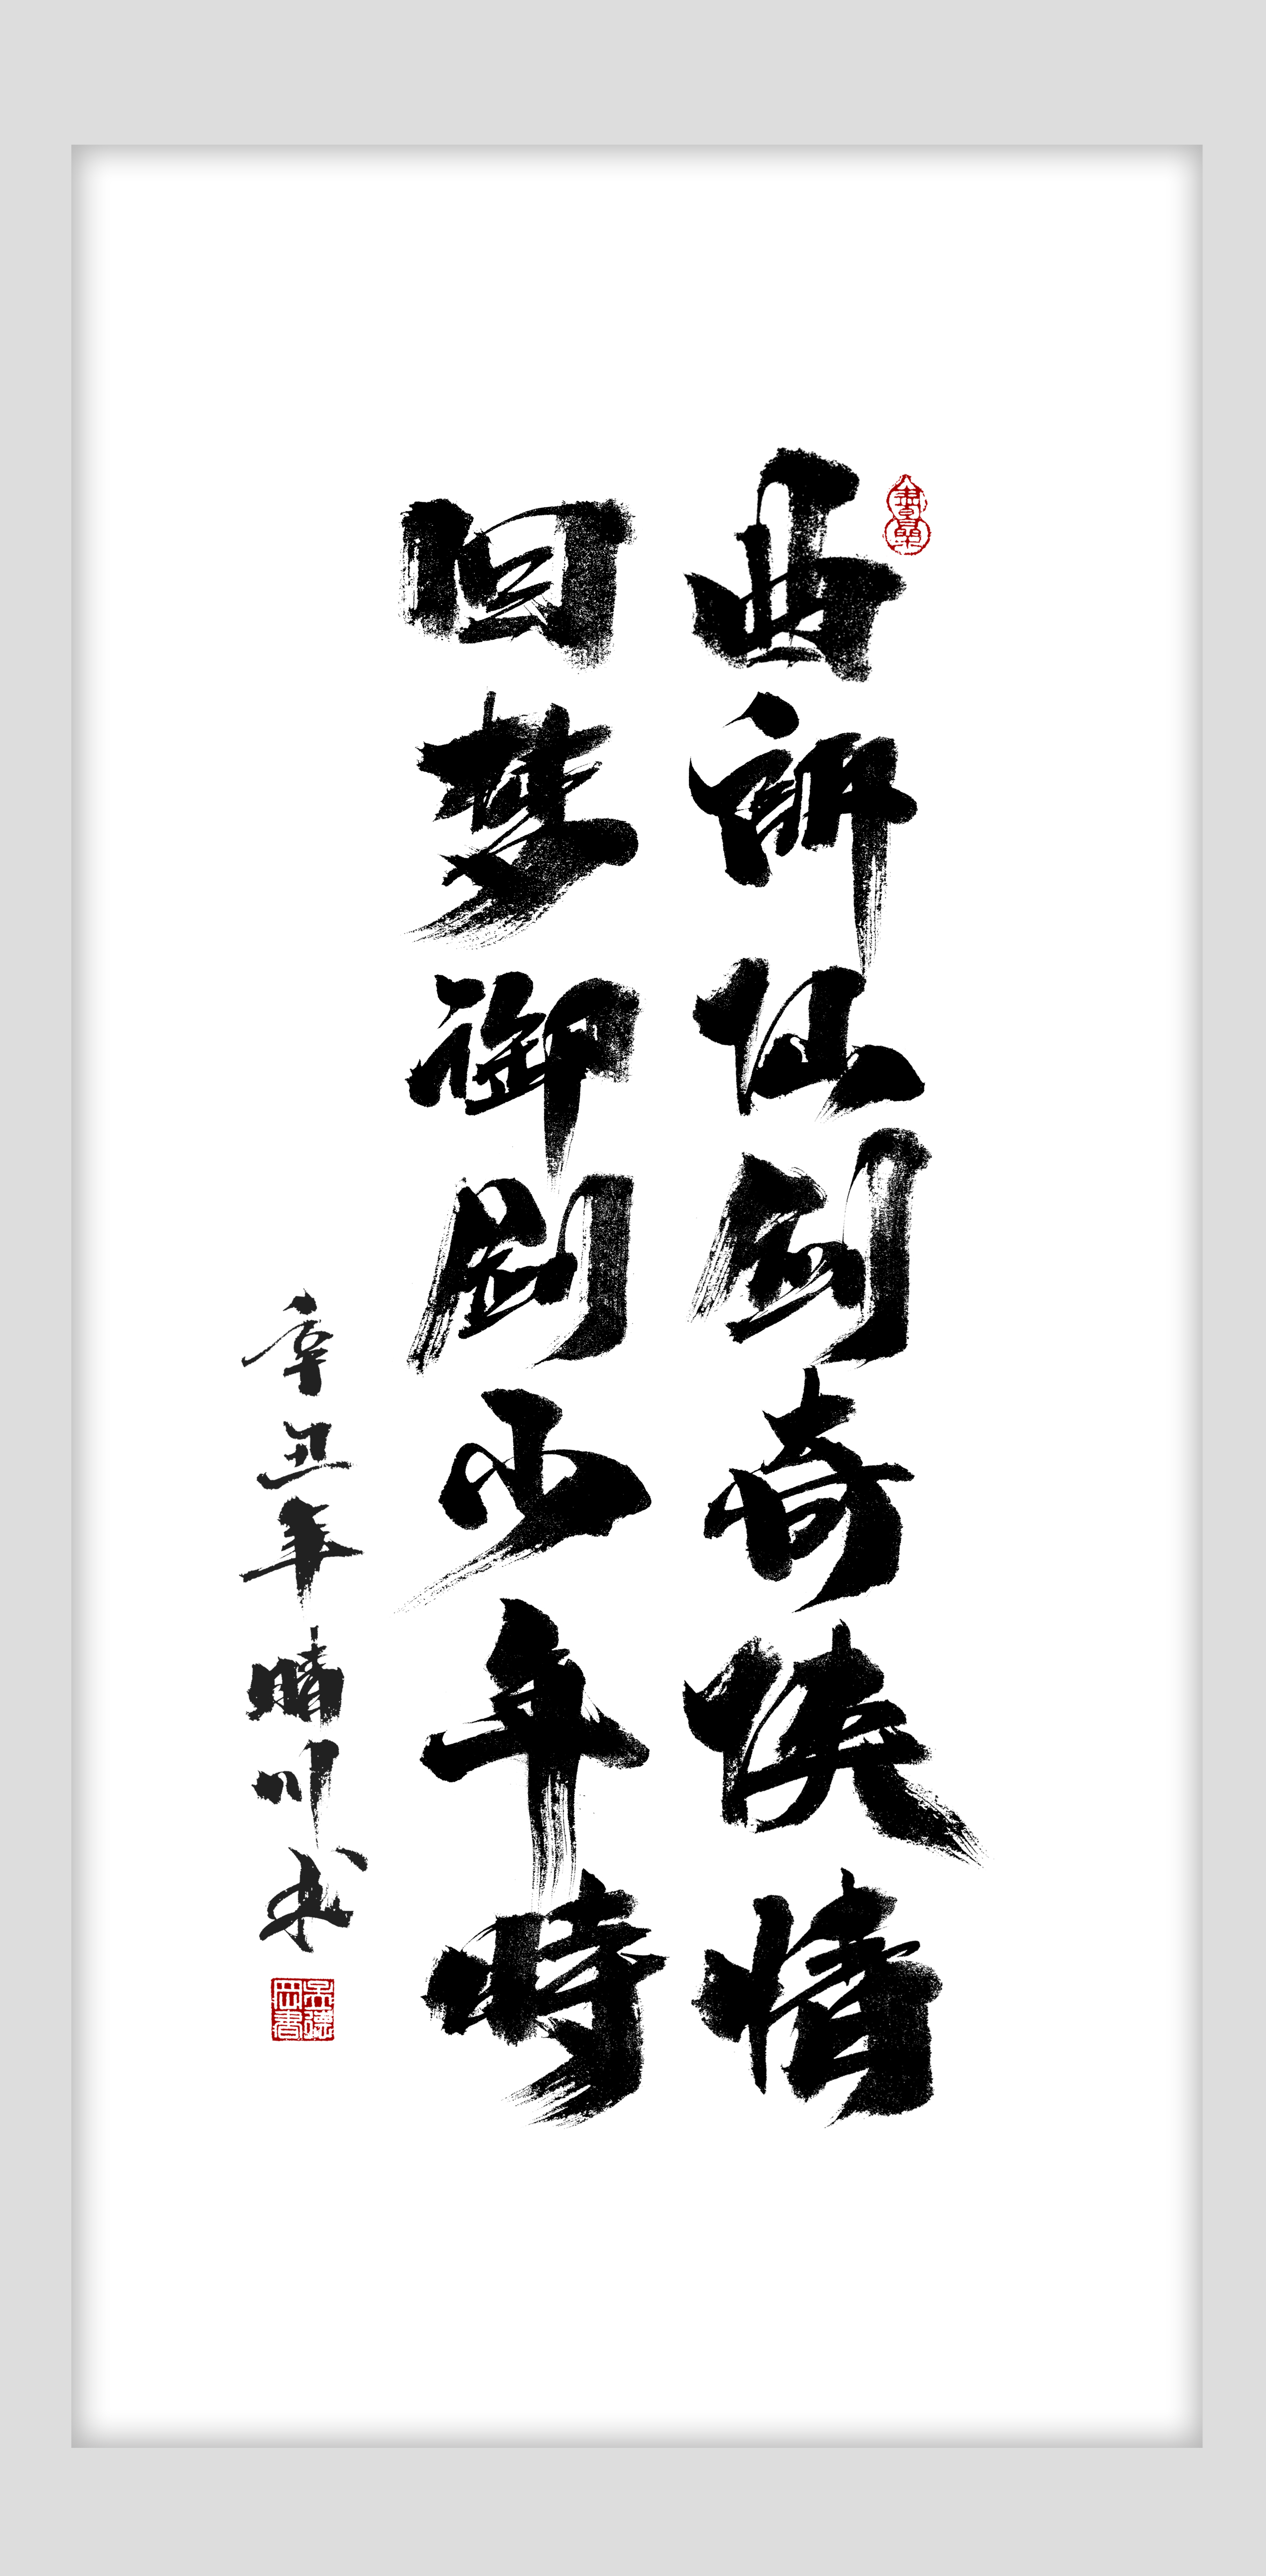 曲訴仙剑奇侠情
旧梦御劍少年時
辛丑年晴川书